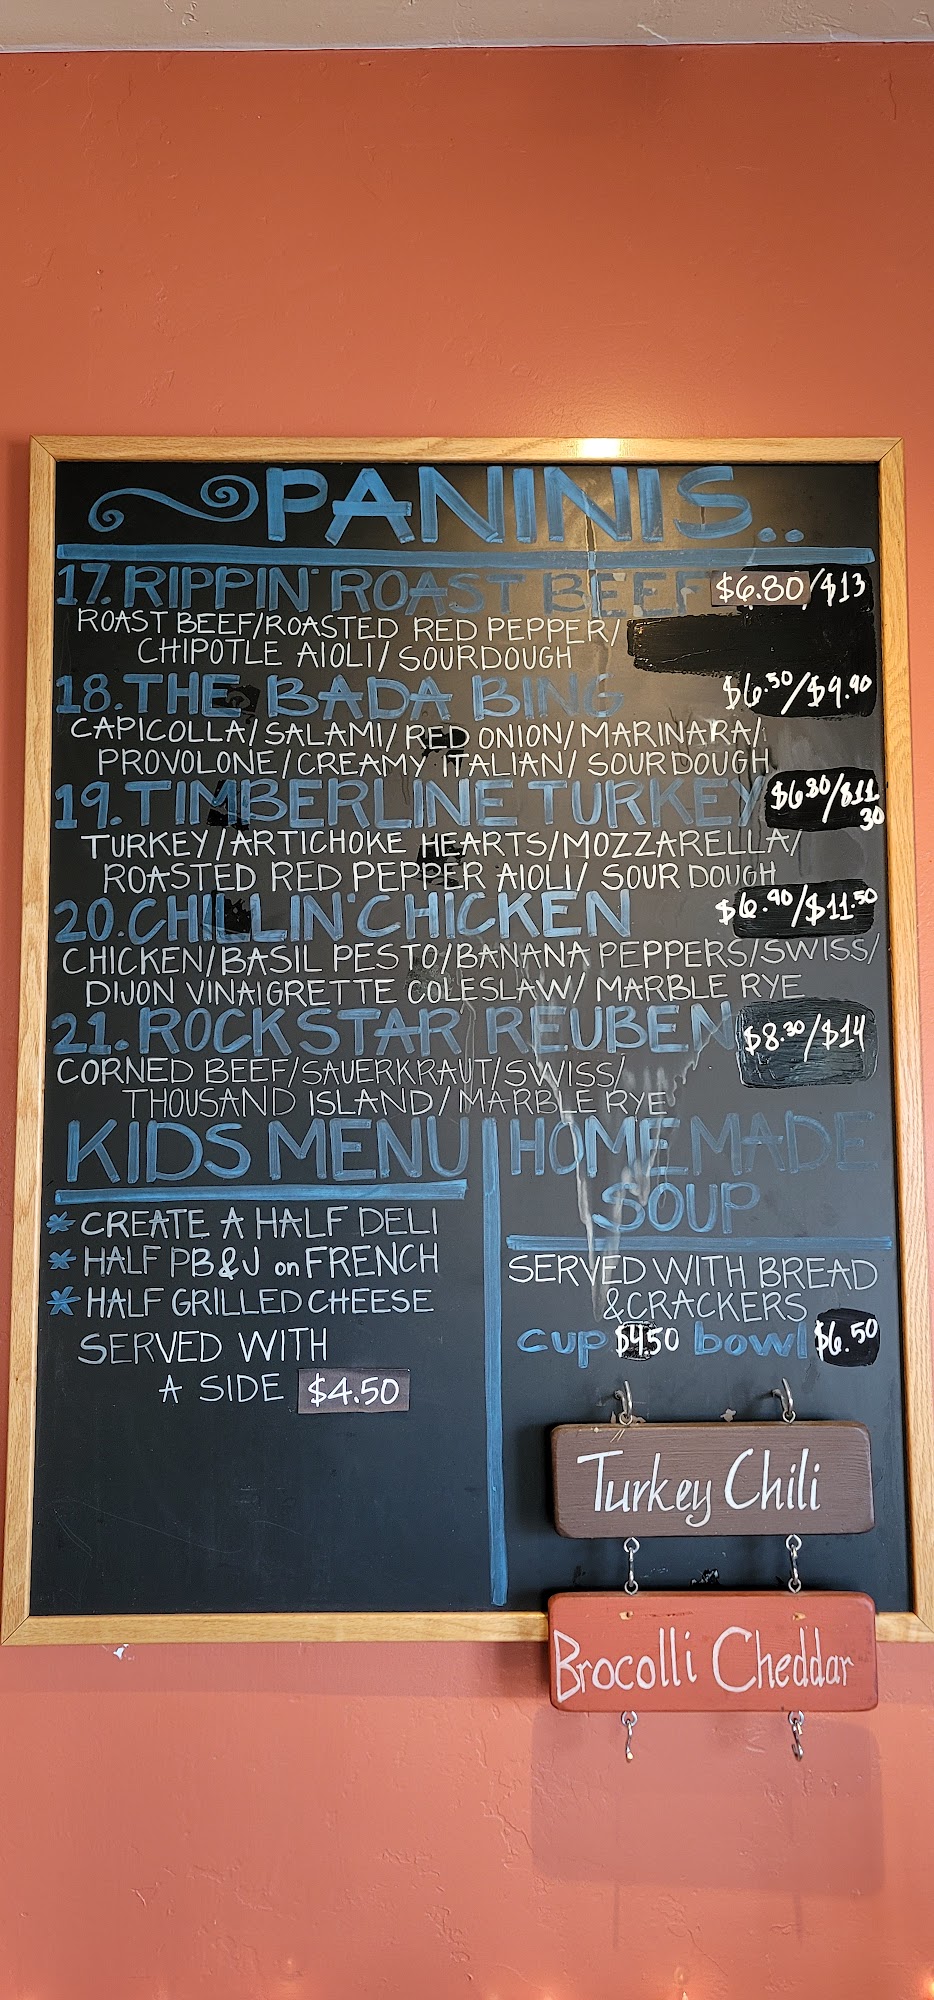 PANINIS..
17. RIPPIN' ROAST BEEF $6.80/$13
ROAST BEEF/ROASTED RED PEPPER/
CHIPOTLE AIOLI/SOURDOUGH
18. THE BADA BING $6.50/$9.90
CAPICOLLA/SALAMI/RED ONION/MARINARA/
PROVOLONE/CREAMY ITALIAN/SOURDOUGH
19. TIMBERLINE TURKEY $6.80/$11.30
TURKEY/ARTICHOKE HEARTS/MOZZARELLA/
ROASTED RED PEPPER AIOLI/SOUR DOUGH
20. CHILLIN' CHICKEN $6.90/$11.50
CHICKEN/BASIL PESTO/BANANA PEPPERS/SWISS/
DIJON VINAIGRETTE COLESLAW/MARBLE RYE
21. ROCKSTAR REUBEN $8.30/$14
CORNED BEEF/SAUERKRAUT/SWISS/
THOUSAND ISLAND/MARBLE RYE
KIDS MENU
* CREATE A HALF DELI
* HALF PB&J on FRENCH
* HALF GRILLED CHEESE
SERVED WITH
A SIDE $4.50
HOMEMADE
SOUP
SERVED WITH BREAD
&CRACKERS
cup $4.50 bowl $6.50
Turkey Chili
Brocolli Cheddar